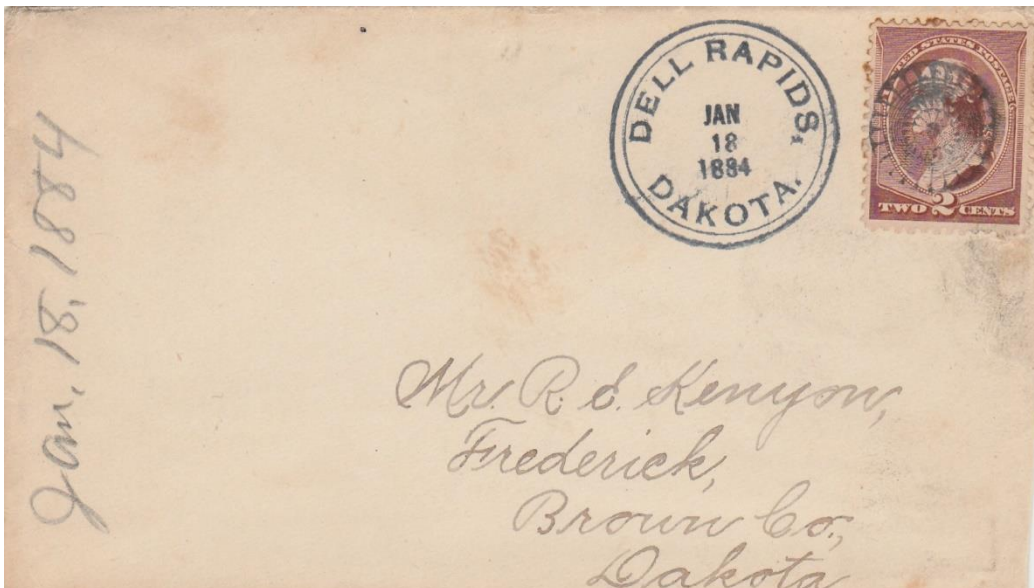 Jan. 18, 1884
DELL RAPIDS,
JAN
18
1884
DAKOTA.
UNITED STATES POSTAGE
TWO 2 CENTS
Mr. R. E. Kenyon,
Frederick,
Brown Co.,
Dakota